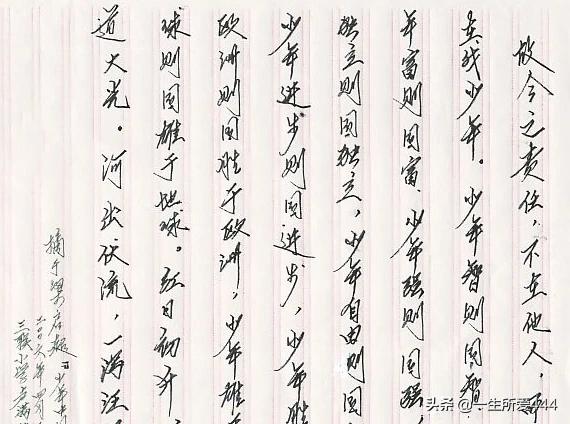 故今之责任，不在他人，而
在我少年。少年智则国智，
年富则国富，少年强则国强，
独立则国独立，少年自由则国
少年进步则国进步，少年胜
欧洲则国胜于欧洲，少年雄于
球则国雄于地球。红日初升，
道大光。河出伏流，一泻汪
摘于梁启超《少年中
二〇〇六年四月
三联小学
头条 @一生所爱444